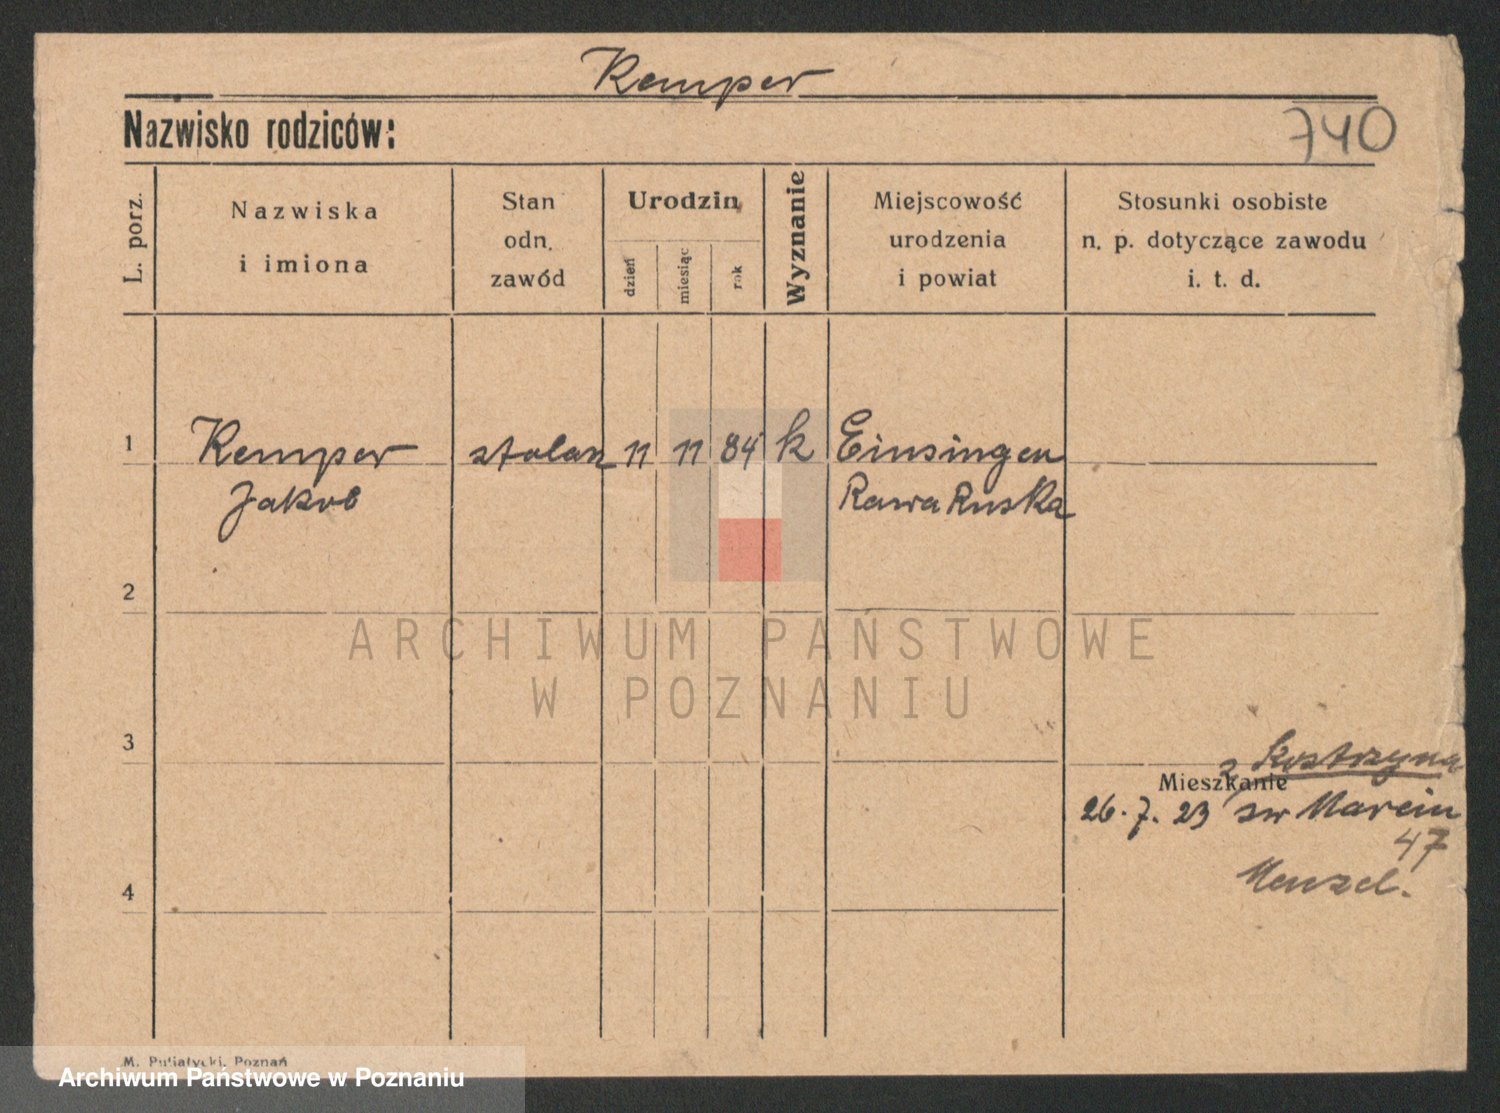 Kemper
Nazwisko rodziców:
740
L. porz.
Nazwiska
i imiona
Stan
odn.
zawód
Urodzin
dzień
miesiąc
rok
Wyznanie
Miejscowość
urodzenia
i powiat
Stosunki osobiste
n. p. dotyczące zawodu
i. t. d.
1 Kemper stolarz 11 11 84 k Einsingen
Jakob Rawa Ruska
2
ARCHIWUM PAŃSTWOWE
W POZNANIU
3
z Kostrzyna
Mieszkanie
26.7.23 św Marcin
47
Menzel.
4
M. Putiatycki, Poznań
Archiwum Państwowe w Poznaniu